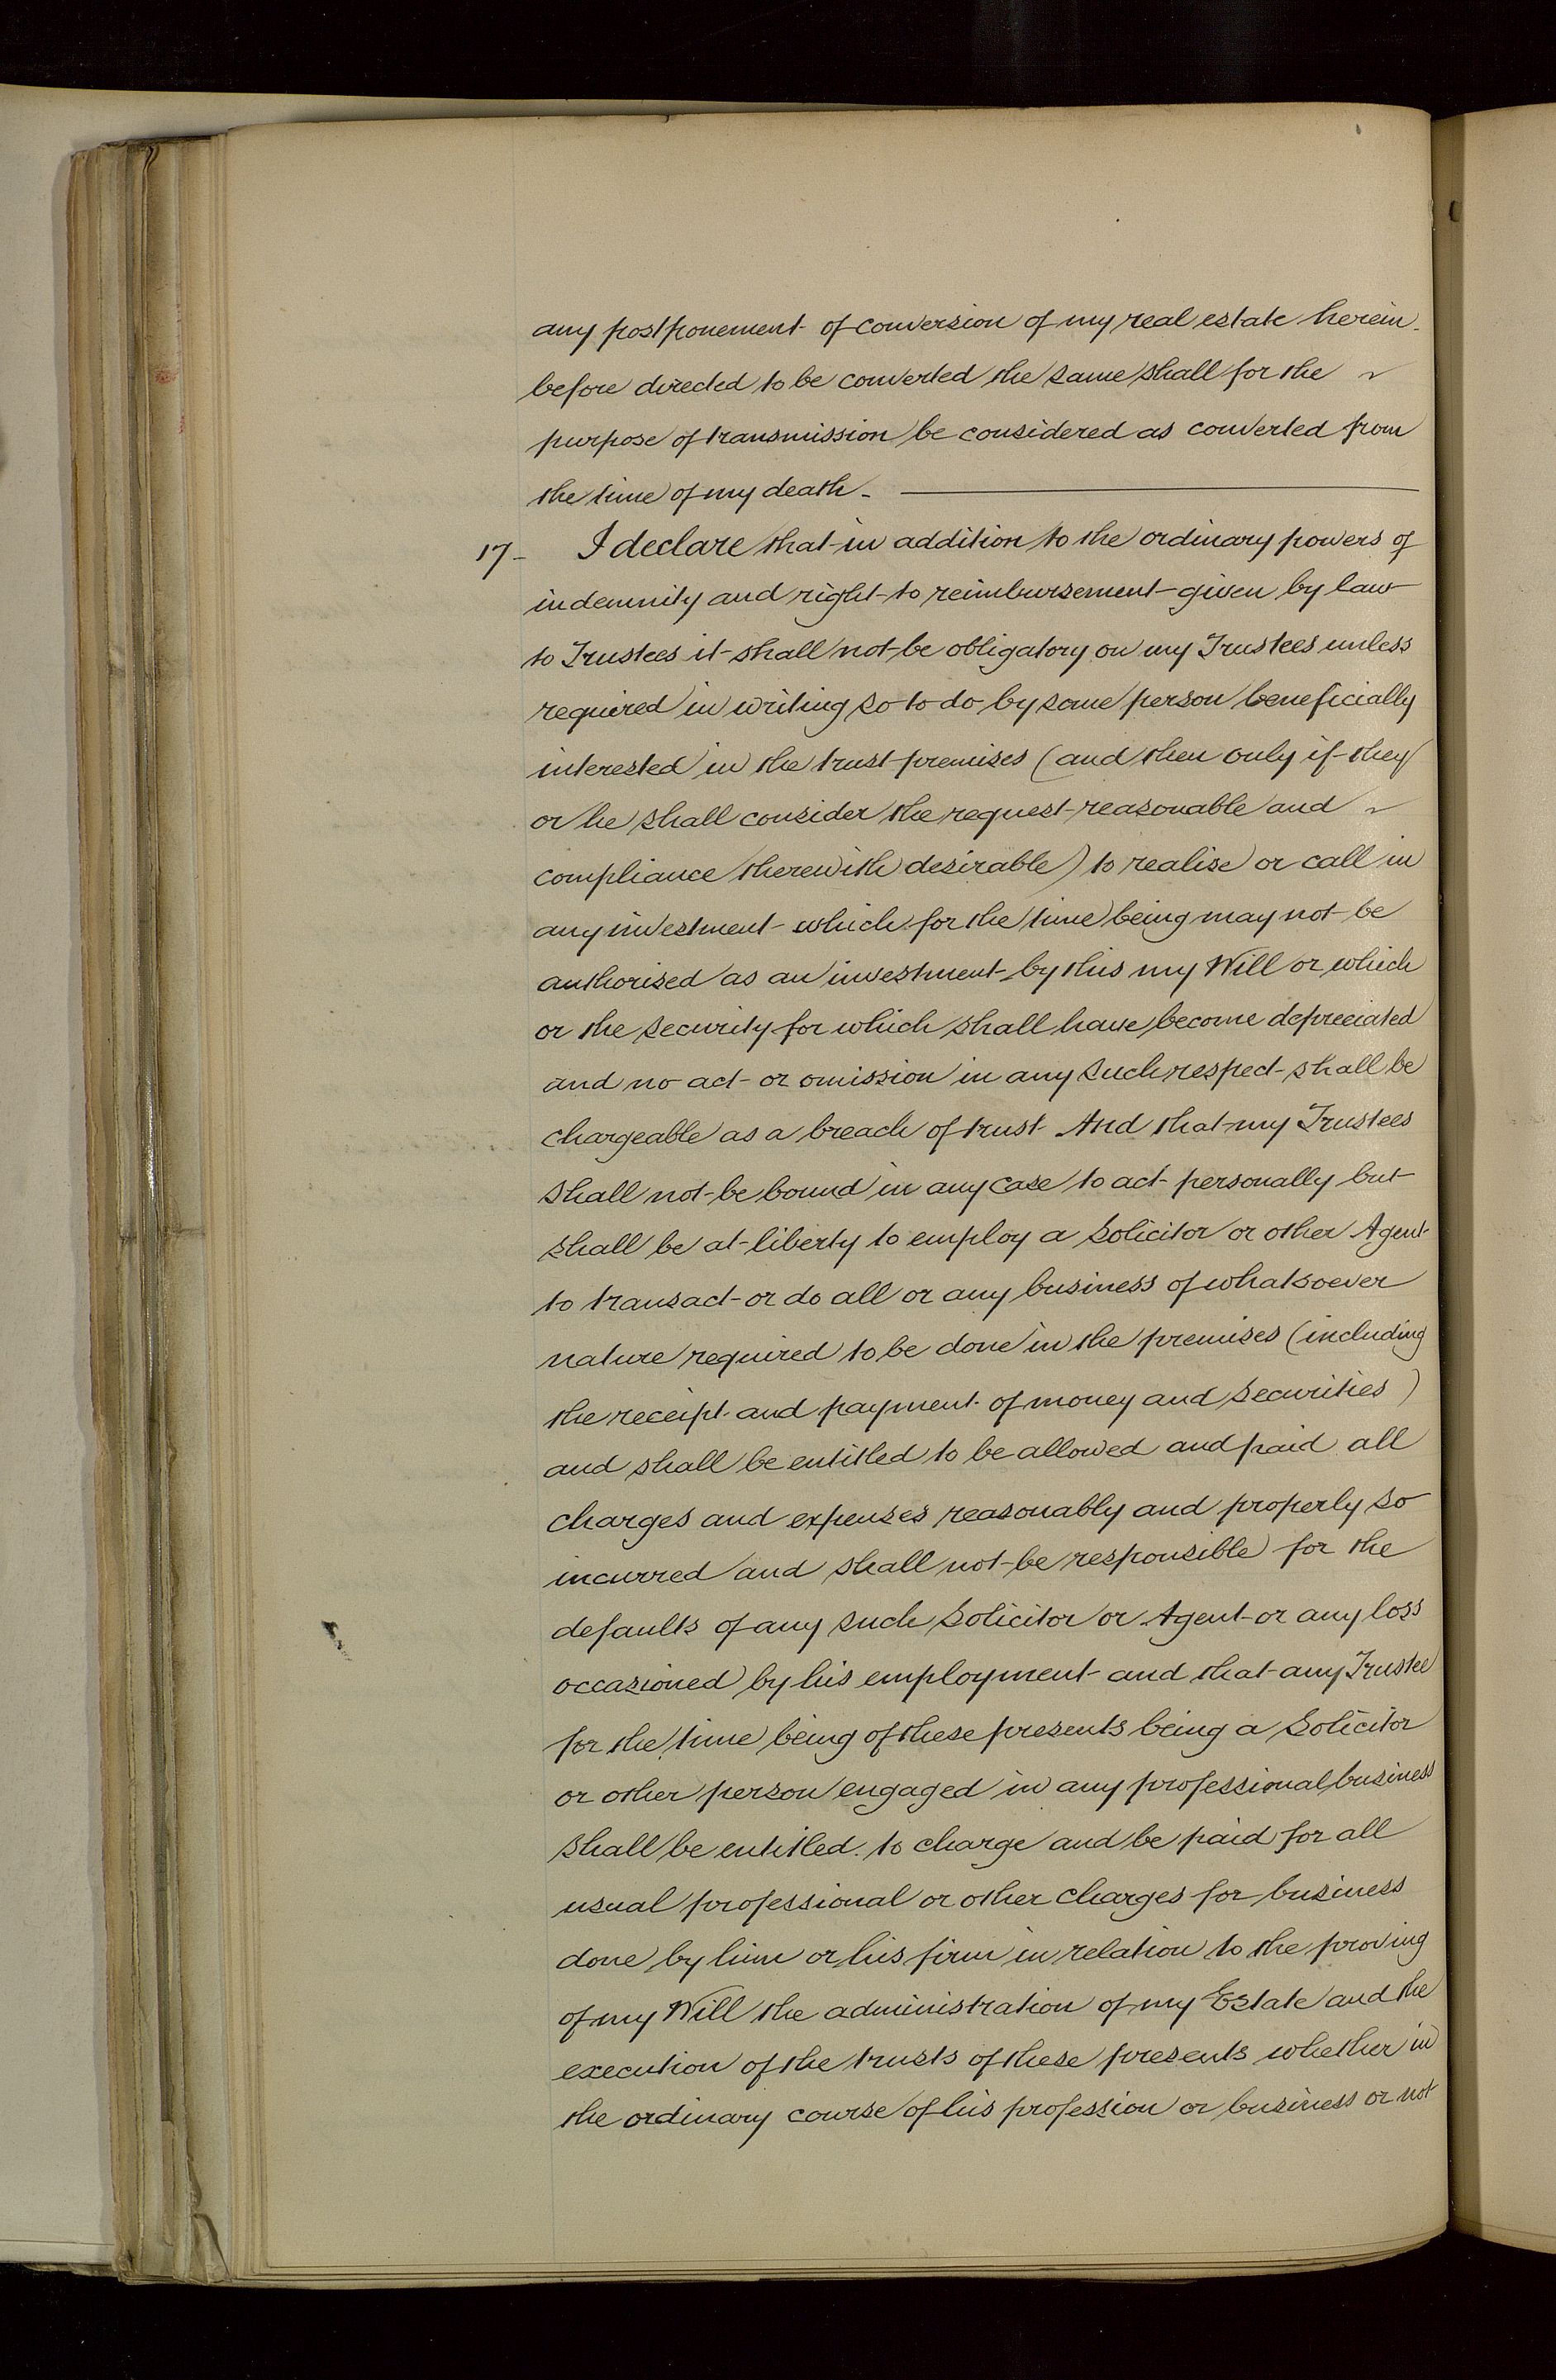 any postponement of conversion of my real estate herein-
before directed to be converted the same shall for the
purpose of transmission be considered as converted from
the time of my death.
17- I declare that in addition to the ordinary powers of
indemnity and right to reimbursement given by law
to Trustees it shall not be obligatory on my Trustees unless
required in writing so to do by some person beneficially
interested in the trust premises (and then only if they
or he shall consider the request reasonable and
compliance therewith desirable) to realise or call in
any investment which for the time being may not be
authorised as an investment by this my Will or which
or the security for which shall have become depreciated
and no act or omission in any such respect shall be
chargeable as a breach of trust And that my Trustees
shall not be bound in any case to act personally but
shall be at liberty to employ a Solicitor or other Agent
to transact or do all or any business of whatsoever
nature required to be done in the premises (including
the receipt and payment of money and securities)
and shall be entitled to be allowed and paid all
charges and expenses reasonably and properly so
incurred and shall not be responsible for the
defaults of any such Solicitor or Agent or any loss
occasioned by his employment and that any Trustee
for the time being of these presents being a Solicitor
or other person engaged in any professional business
shall be entitled to charge and be paid for all
usual professional or other charges for business
done by him or his firm in relation to the proving
of my Will the administration of my Estate and the
execution of the trusts of these presents whether in
the ordinary course of his profession or business or not